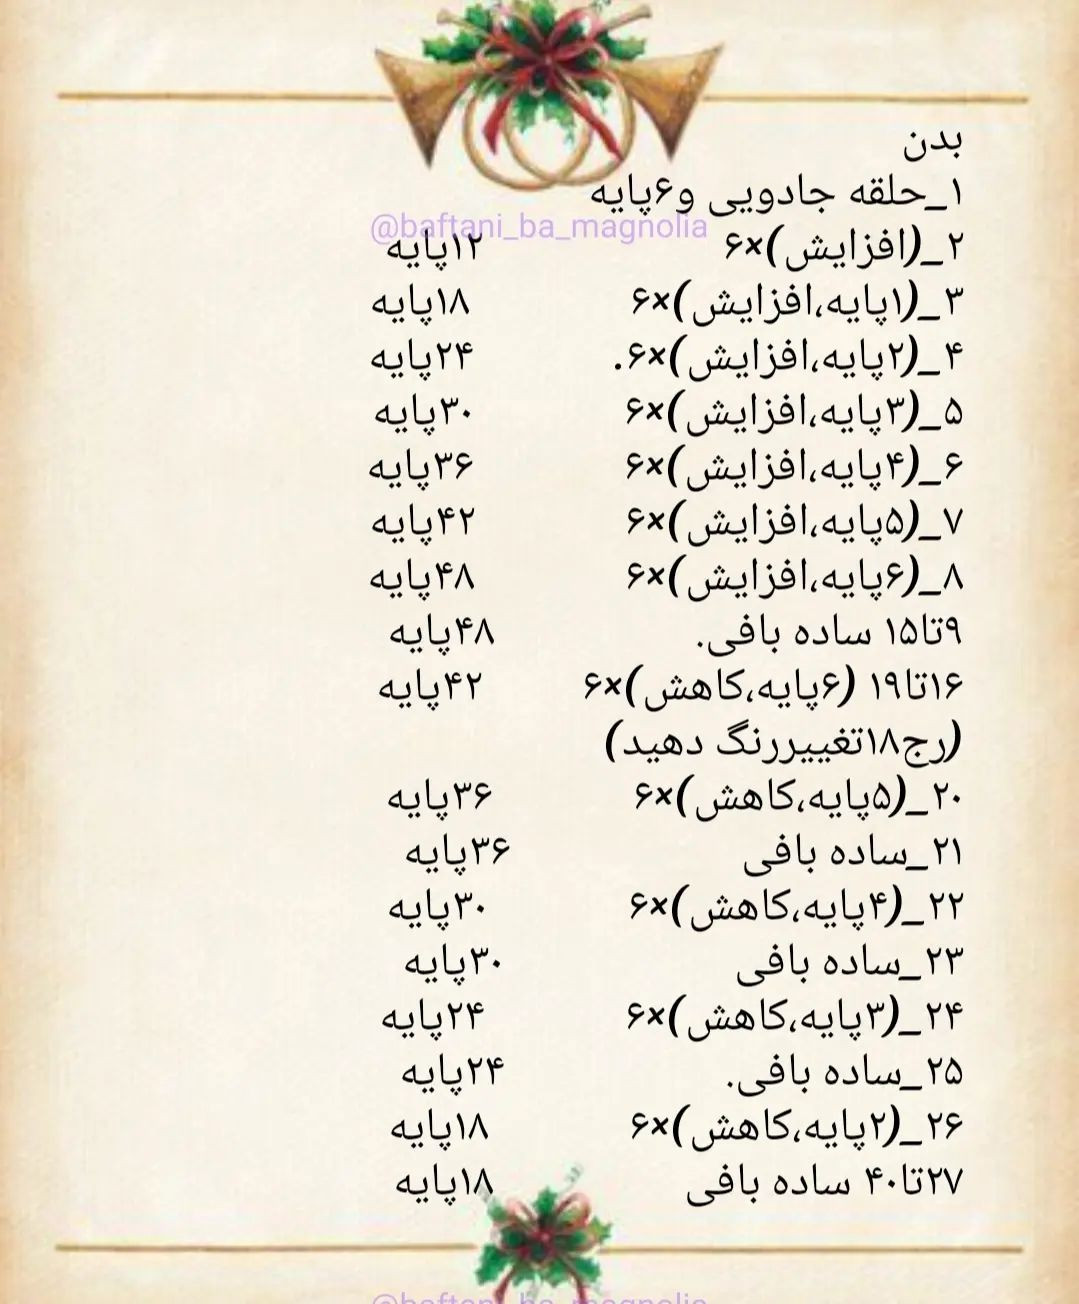 بدن
۱_حلقه جادویی و۶پایه
@baftani_ba_magnolia
۲_(افزایش)×۶ ۱۲پایه
۳_(۱پایه،افزایش)×۶ ۱۸پایه
۴_(۲پایه،افزایش)×۶. ۲۴پایه
۵_(۳پایه،افزایش)×۶ ۳۰پایه
۶_(۴پایه،افزایش)×۶ ۳۶پایه
۷_(۵پایه،افزایش)×۶ ۴۲پایه
۸_(۶پایه،افزایش)×۶ ۴۸پایه
۹تا۱۵ ساده بافی. ۴۸پایه
۱۶تا۱۹ (۶پایه،کاهش)×۶ ۴۲پایه
(رج۱۸تغییررنگ دهید)
۲۰_(۵پایه،کاهش)×۶ ۳۶پایه
۲۱_ساده بافی ۳۶پایه
۲۲_(۴پایه،کاهش)×۶ ۳۰پایه
۲۳_ساده بافی ۳۰پایه
۲۴_(۳پایه،کاهش)×۶ ۲۴پایه
۲۵_ساده بافی. ۲۴پایه
۲۶_(۲پایه،کاهش)×۶ ۱۸پایه
۲۷تا۴۰ ساده بافی ۱۸پایه
@baftani_ba_magnolia